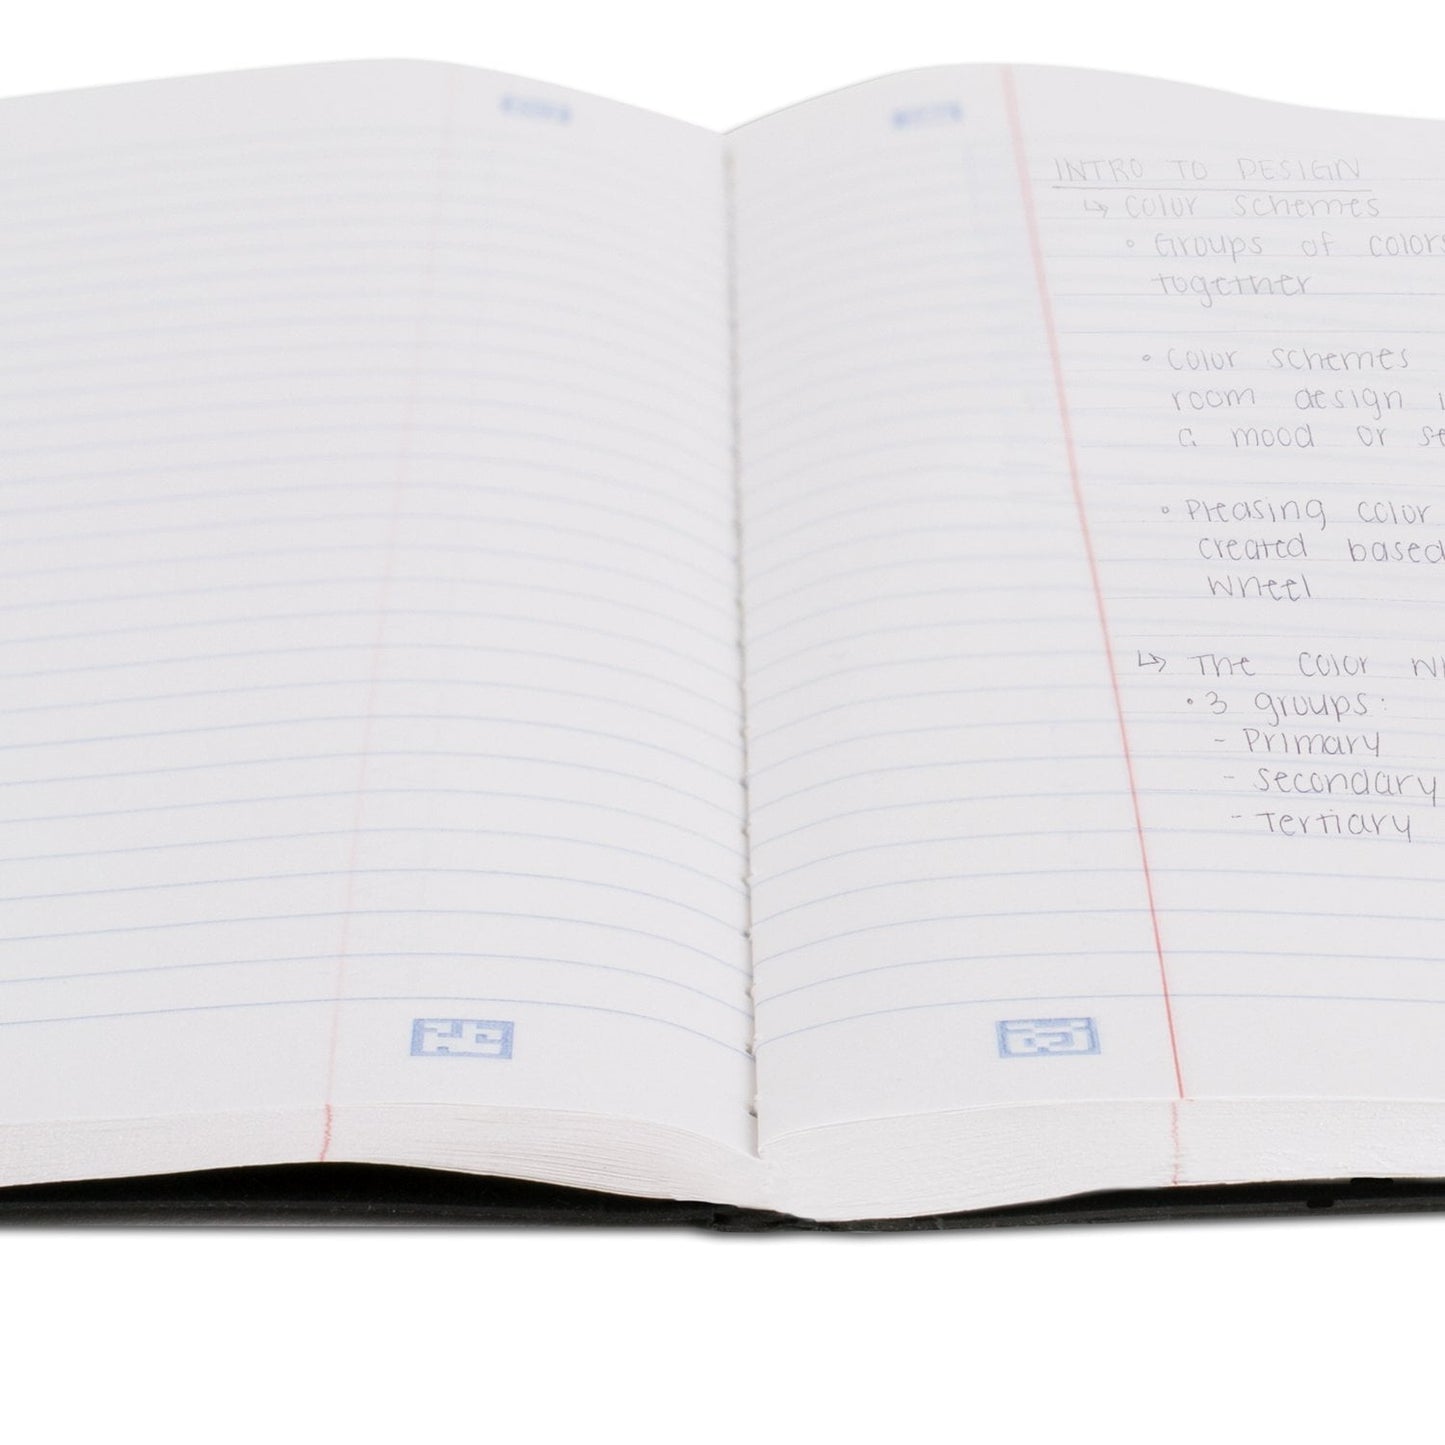 INTRO TO DESIGN
↳ Color Schemes
• Groups of colors
together
• Color schemes
room design
a mood or
• Pleasing color
created based
wheel
↳ The color
• 3 groups:
- Primary
- Secondary
- Tertiary